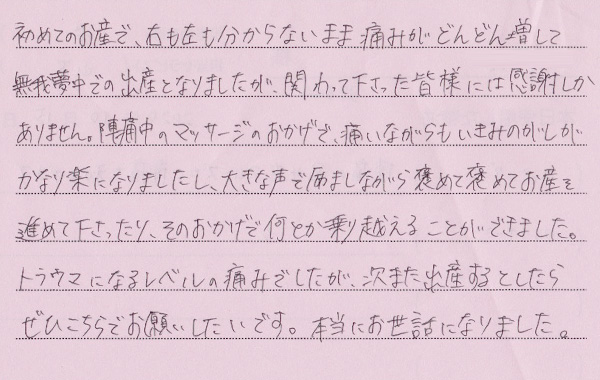 初めてのお産で、右も左も分からないまま痛みがどんどん増して
無我夢中での出産となりましたが、関わって下さった皆様には感謝しか
ありません。陣痛中のマッサージのおかげで、痛いながらもいきみのがしが
かなり楽になりましたし、大きな声で励ましながら褒めて褒めてお産を
進めて下さったり、そのおかげで何とか乗り越えることができました。
トラウマになるレベルの痛みでしたが、次また出産するとしたら
ぜひこちらでお願いしたいです。本当にお世話になりました。